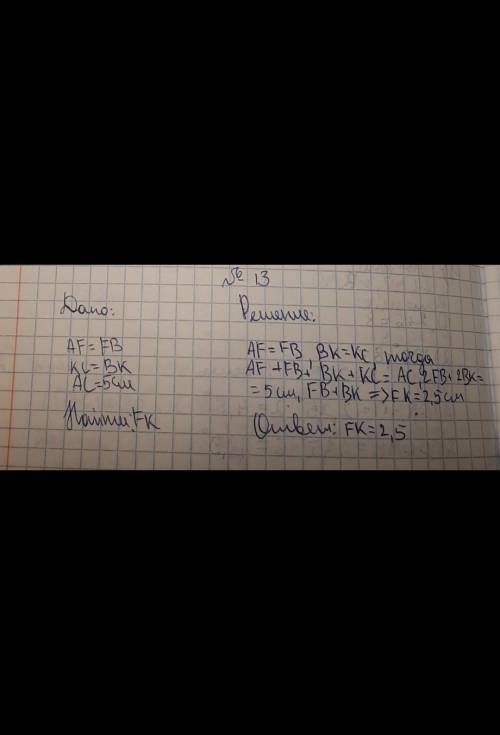 № 13
Дано:
AF = FB
KC = BK
AC = 5см
Найти: FK
Решение:
AF = FB, BK = KC, тогда
AF + FB + BK + KC = AC, 2FB + 2BK =
= 5см, FB + BK => FK = 2,5см
Ответ: FK = 2,5